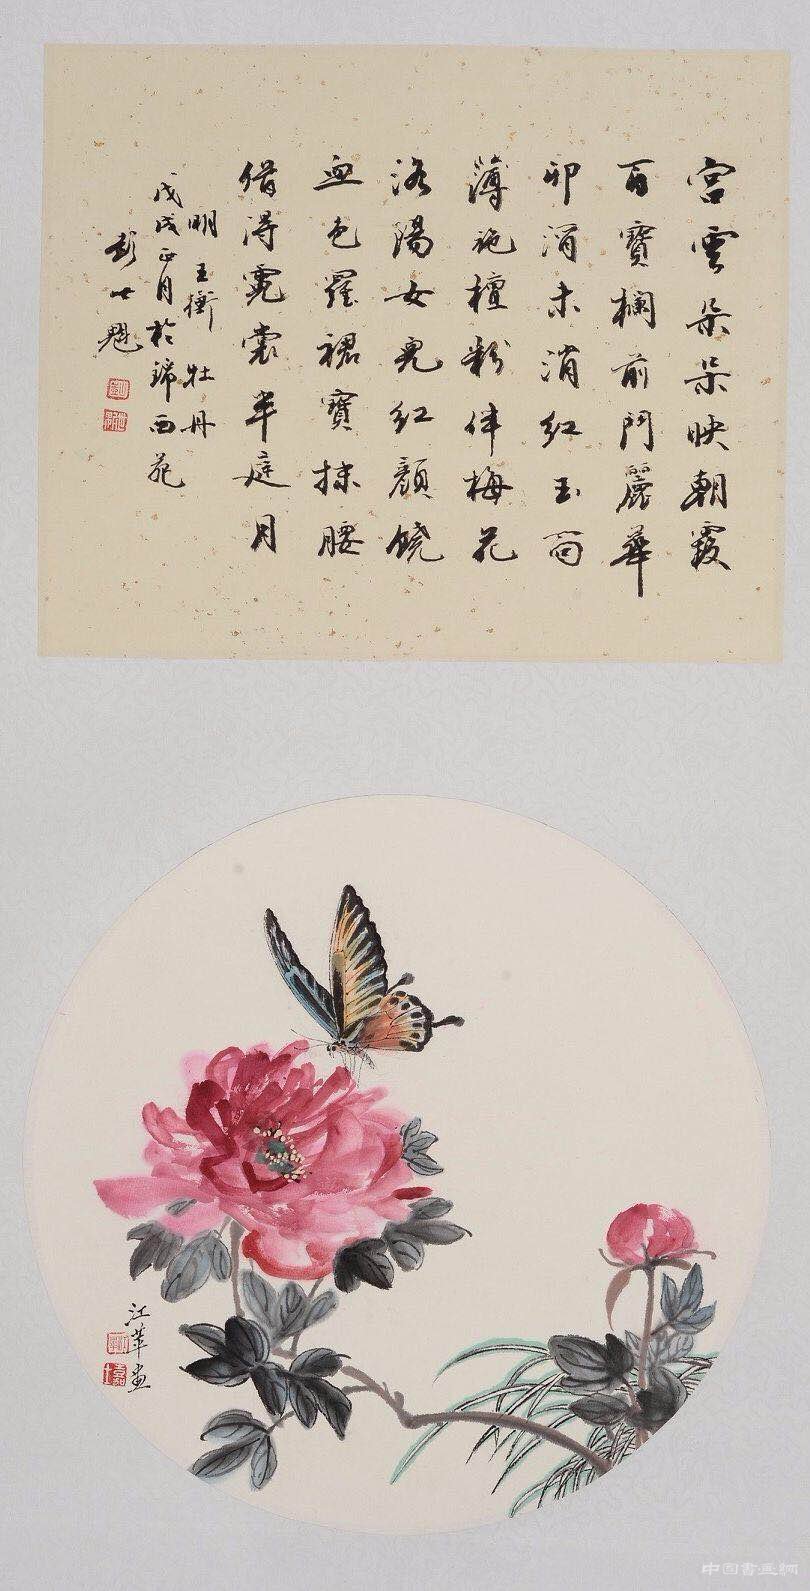 宮雲朵朵映朝霞
百寶欄前鬥麗華
卯酒未消紅玉面
薄施檀粉伴梅花
洛陽女兒紅顏饒
血色羅裙寶抹腰
借得霓裳半庭月
明 王衡 牡丹
戊戌正月於錦西苑
彭世魁
江苹畫
中国書画網